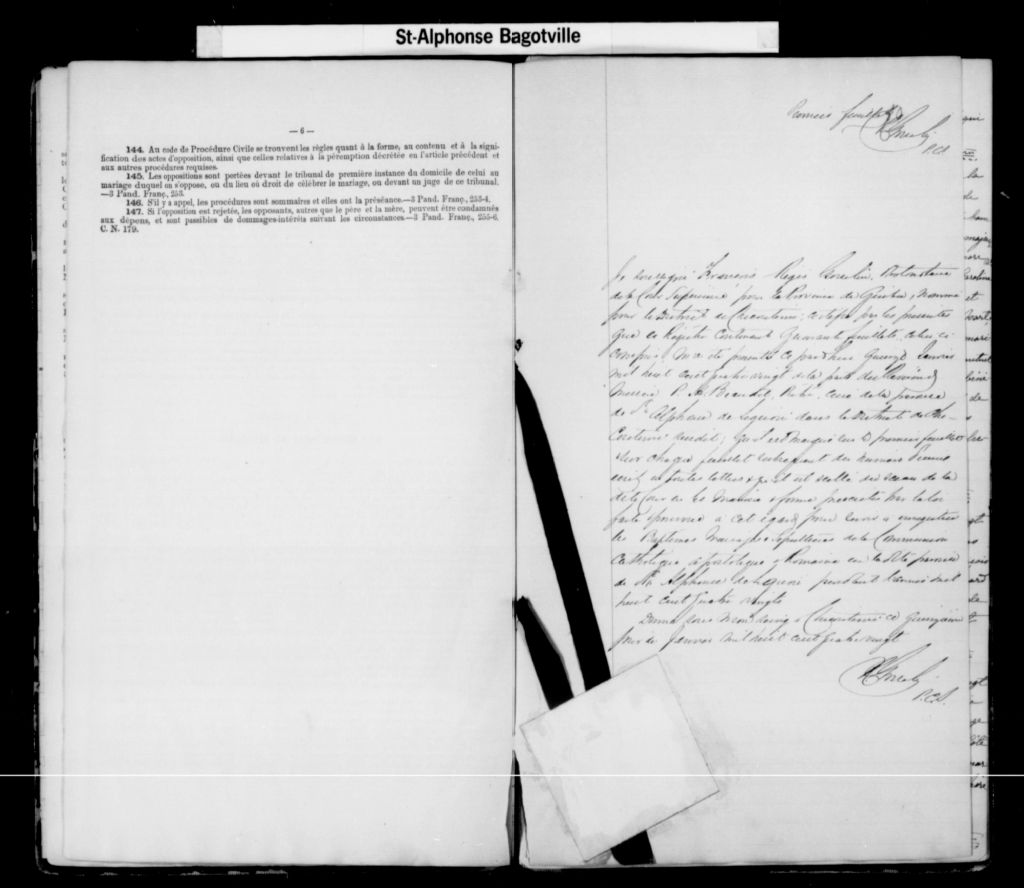 St-Alphonse Bagotville
— 6 —
144. Au code de Procédure Civile se trouvent les règles quant à la forme, au contenu et à la signi-
fication des actes d'opposition, ainsi que celles relatives à la péremption décrétée en l'article précédent et
aux autres procédures requises.
145. Les oppositions sont portées devant le tribunal de première instance du domicile de celui au
mariage duquel on s'oppose, ou du lieu où droit de célébrer le mariage, ou devant un juge de ce tribunal.
—3 Pand. Franç., 253.
146. S'il y a appel, les procédures sont sommaires et elles ont la préséance.—3 Pand. Franç., 253-4.
147. Si l'opposition est rejetée, les opposants, autres que le père et la mère, peuvent être condamnés
aux dépens, et sont passibles de dommages-intérêts suivant les circonstances.—3 Pand. Franç., 255-6.
C. N. 179.
Premier feuillet
P.C.S.
Je soussigné François Régis Gosselin, Protonotaire
de la Cour Supérieure pour la Province de Québec, nommé
pour le District de Chicoutimi, certifie par les présentes
que ce Registre contenant Quarante feuillets celui ci
compris, m'a été présenté ce jourd'hui Quinze Janvier
mil huit cent quatre vingt de la part du Révérend
Messire Ptre. curé de la paroisse
de St Alphonse de Liguori dans le District de Chi-
coutimi susdit; qu'il est marqué sur le premier feuillet
sur chaque feuillet subséquent du numéro
écrit en toutes lettres et est scellé du sceau de la
dite Cour en la manière & forme prescrites par la loi
faite & pourvue à cet égard pour servir à enregistrer
les Baptêmes Mariages & Sépultures de la Communion
Catholique Apostolique & Romaine en la dite paroisse
de St. Alphonse de Liguori pendant l'année mil
huit cent quatre vingt
Donné sous mon seing à Chicoutimi ce quinzième
jour de Janvier mil huit cent quatre vingt
P.C.S.